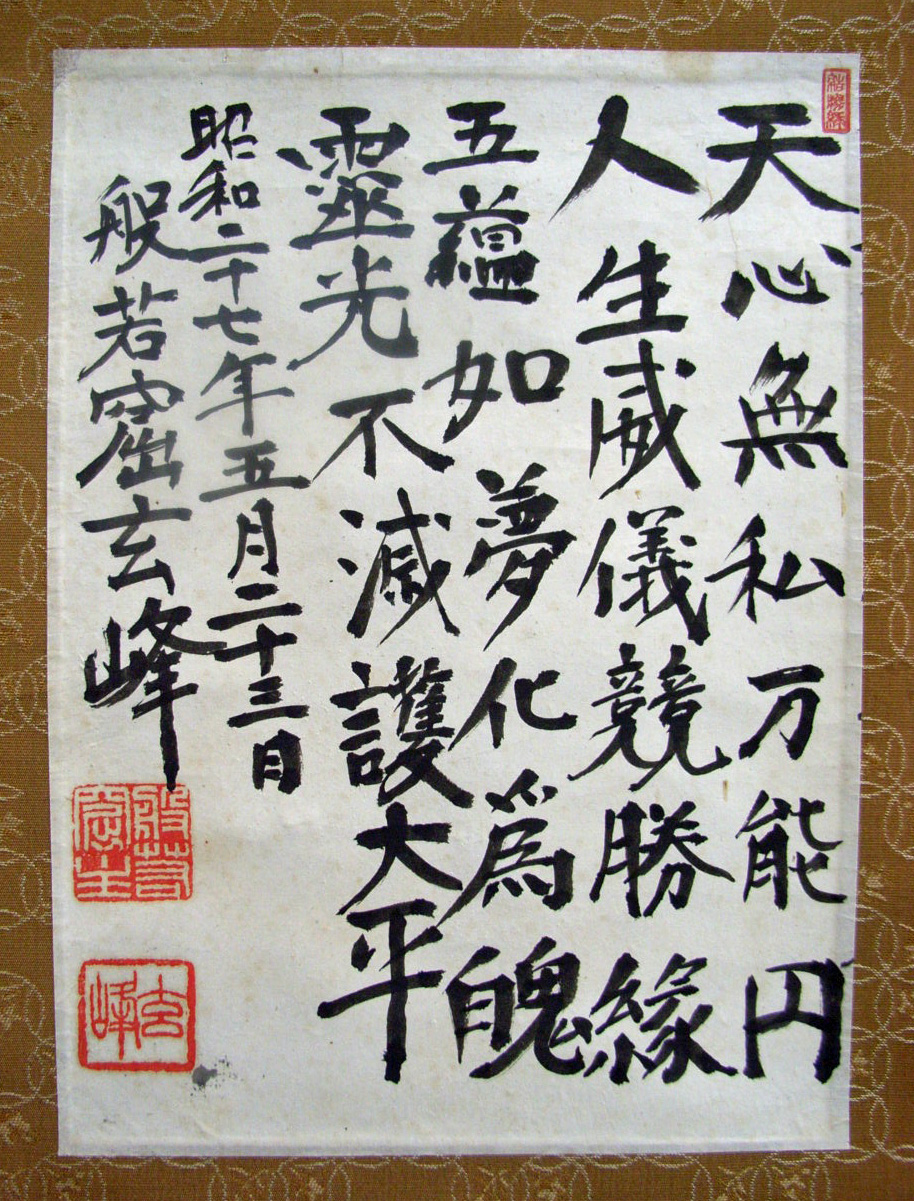 天心無私万能円
人生威儀競勝縁
五蘊如夢化為醜
靈光不滅護大平
昭和二十七年五月二十三日
般若窟玄峰
般若窟主
玄峰